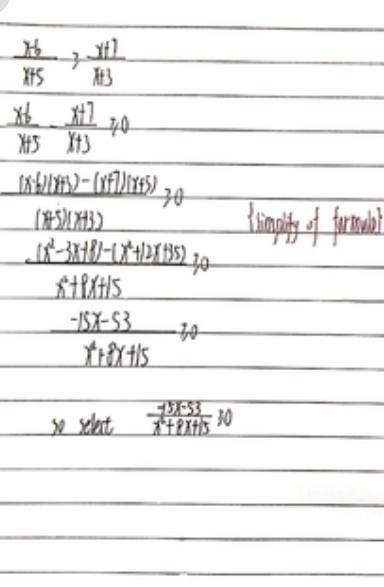 x-6/x+5 ≥ x+7/x+3
x-6/x+5 - x+7/x+3 ≥0
(x-6)(x+3)-(x+7)(x+5)/(x+5)(x+3) ≥0
{simplify of formula}
(x²-3x+8)-(x²+12x+35)/x²+8x+15 ≥0
-15x-53/x²+8x+15 ≥0
so select -15x-53/x²+8x+15 ≥0